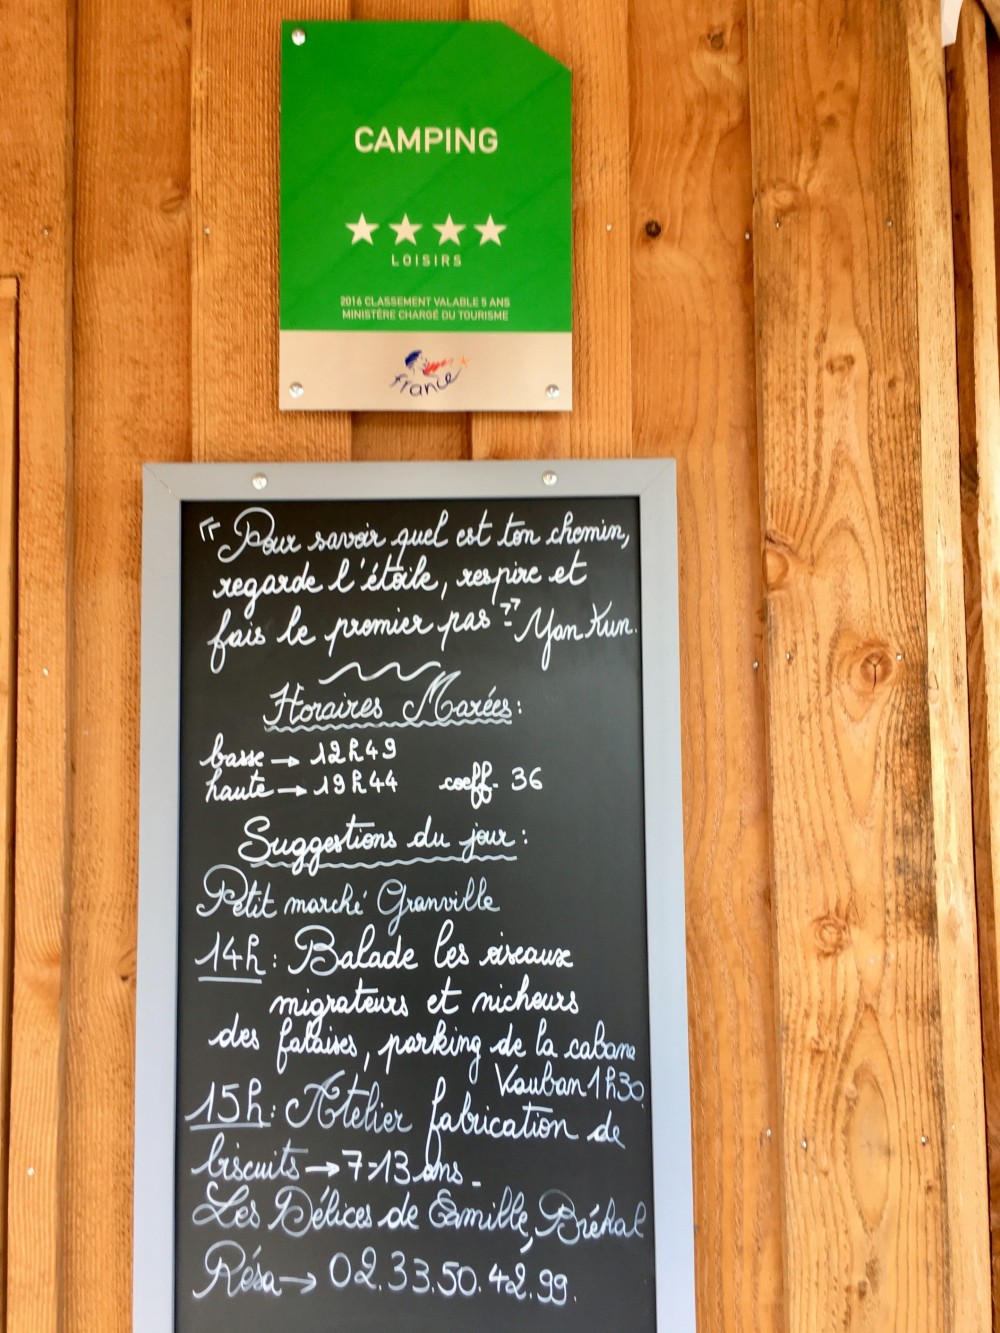 CAMPING
★★★★
LOISIRS
2016 CLASSEMENT VALABLE 5 ANS
MINISTÈRE CHARGÉ DU TOURISME
france
"Pour savoir quel est ton chemin,
regarde l'étoile, respire et
fais le premier pas"- Yan Kun.
Horaires Marées:
basse → 12h49
haute → 19h44 coeff. 36
Suggestions du jour:
Petit marché Granville
14h: Balade les oiseaux
migrateurs et nicheurs
des falaises, parking de la cabane
Vauban 1h30.
15h: Atelier fabrication de
biscuits → 7-13 ans.
Les Délices de Camille, Bréhal
Résa → 02.33.50.42.99.